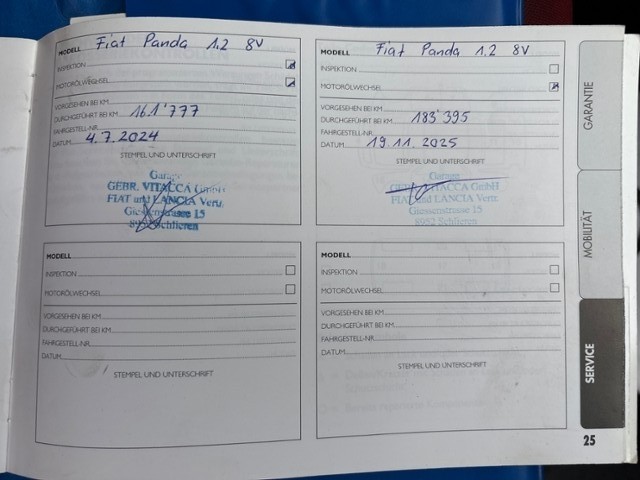 MODELL Fiat Panda 1.2 8V
INSPEKTION
MOTORÖLWECHSEL
VORGESEHEN BEI KM
DURCHGEFÜHRT BEI KM 161'777
FAHRGESTELL-NR.
DATUM 4.7.2024
STEMPEL UND UNTERSCHRIFT
Garage
GEBR. VITACCA GmbH
FIAT und LANCIA Vertr.
Giessenstrasse 15
8952 Schlieren
MODELL Fiat Panda 1.2 8V
INSPEKTION
MOTORÖLWECHSEL
VORGESEHEN BEI KM
DURCHGEFÜHRT BEI KM 183'395
FAHRGESTELL-NR.
DATUM 19.11.2025
STEMPEL UND UNTERSCHRIFT
Garage
GEBR. VITACCA GmbH
FIAT und LANCIA Vertr.
Giessenstrasse 15
8952 Schlieren
MODELL
INSPEKTION
MOTORÖLWECHSEL
VORGESEHEN BEI KM
DURCHGEFÜHRT BEI KM
FAHRGESTELL-NR.
DATUM
STEMPEL UND UNTERSCHRIFT
MODELL
INSPEKTION
MOTORÖLWECHSEL
VORGESEHEN BEI KM
DURCHGEFÜHRT BEI KM
FAHRGESTELL-NR.
DATUM
STEMPEL UND UNTERSCHRIFT
GARANTIE
MOBILITÄT
SERVICE
25